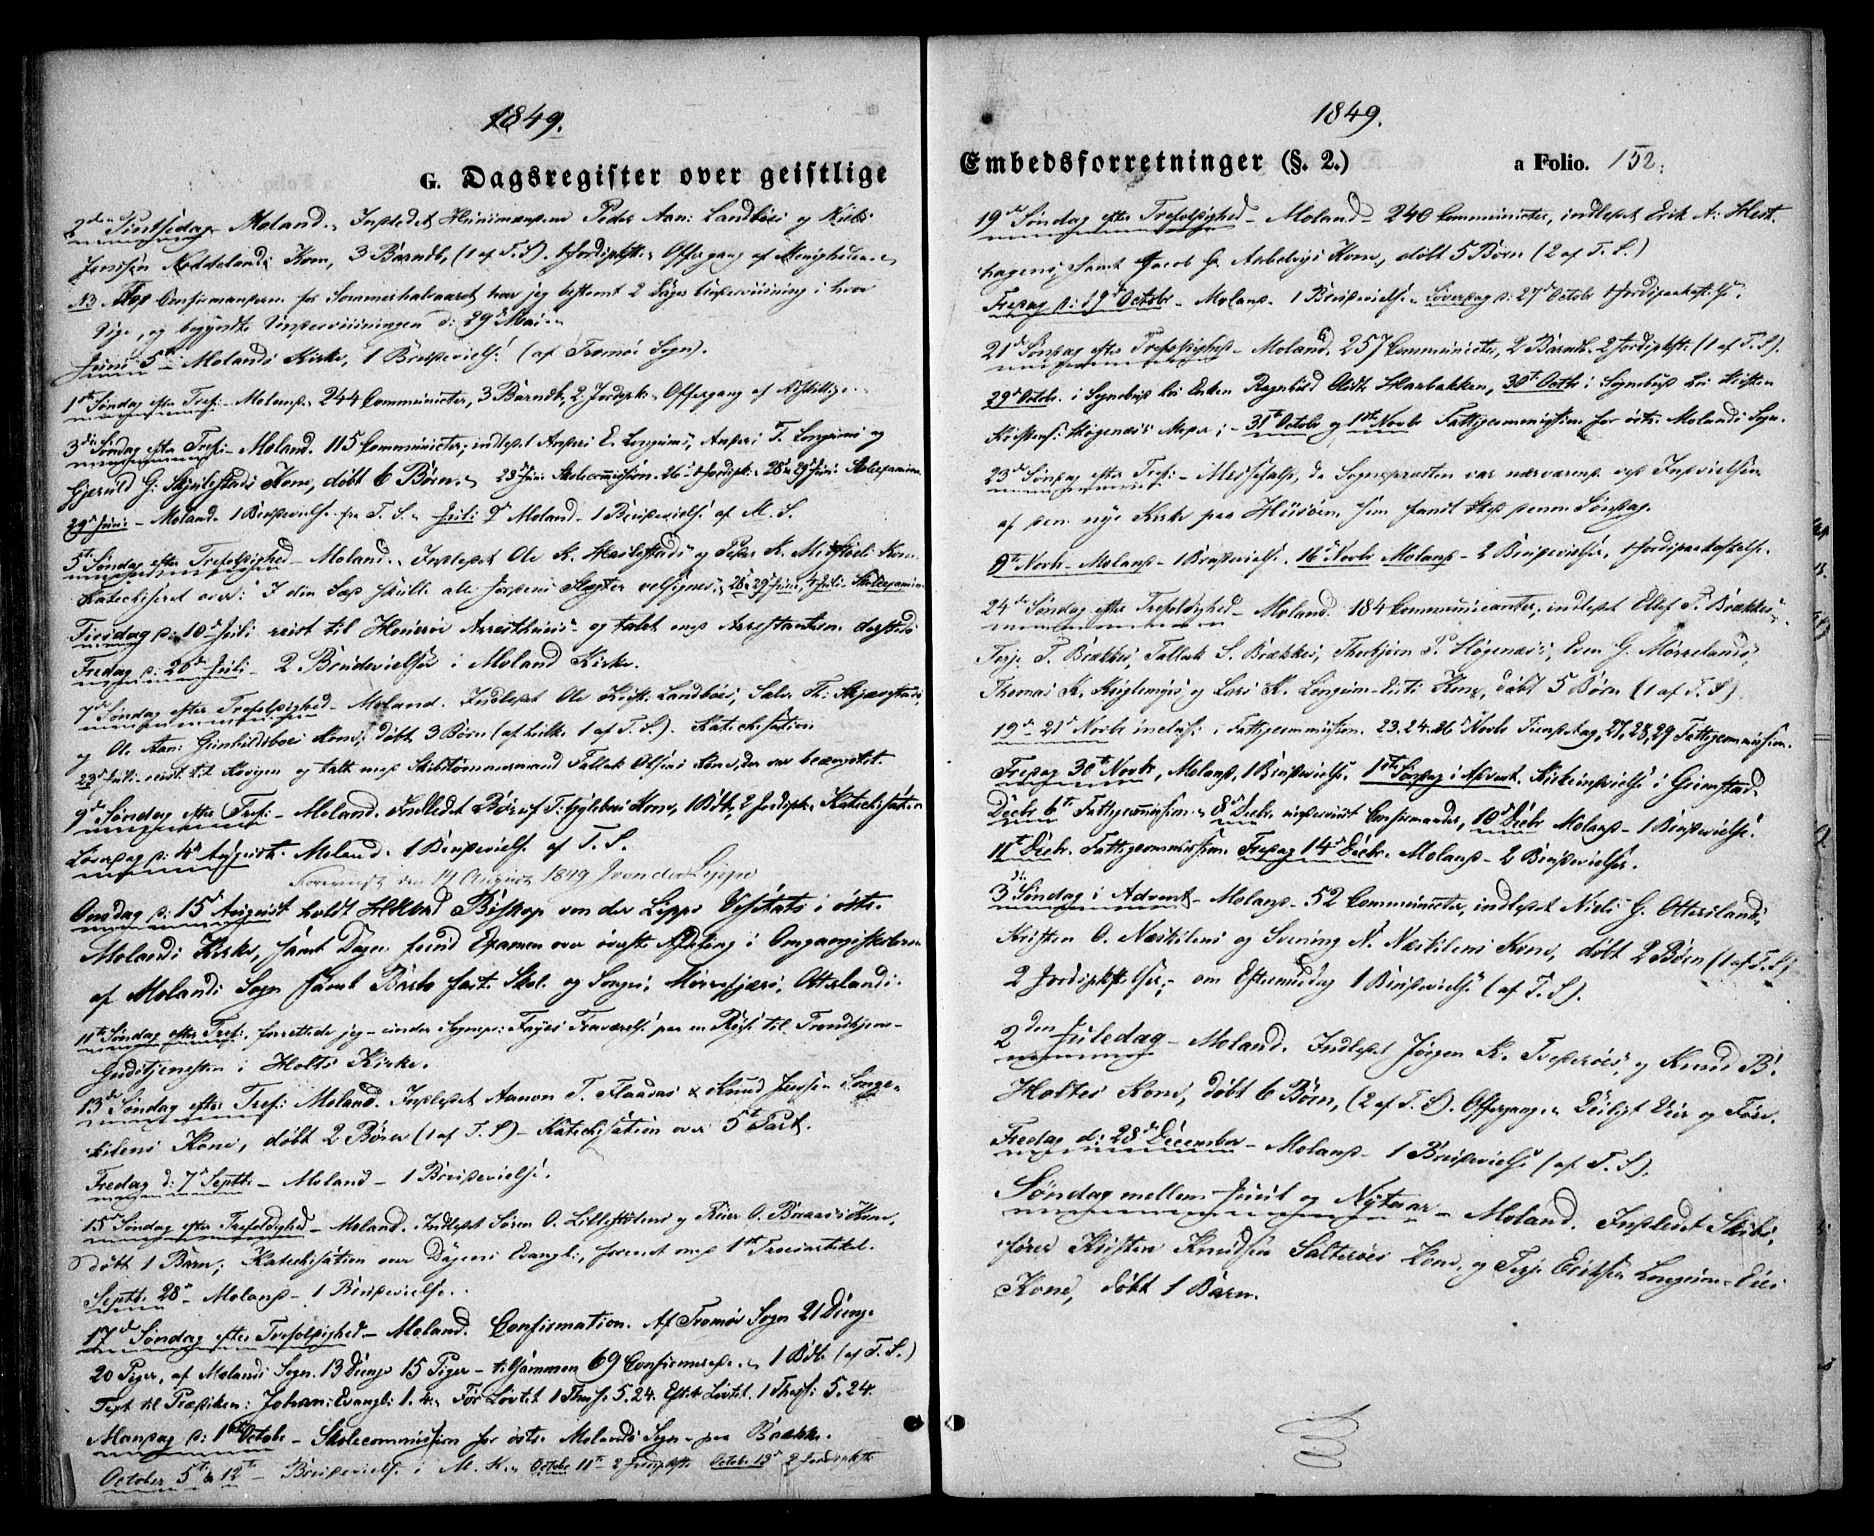 1849.
G. Dagsregister over geistlige
2den Pintsedag Moland. Indledet Huusmændene Peder Aan: Landbøes og Niels
Jensen Neddelands Kone, 3 Barndb. (1 af T. S). Jordpaakst. Offergang af Menigheden.
Confirmanderne for Sommerhalvaaret har jeg bestemt 2 Dages Underviisning i hver
Uge, og begyndte Underviisningen d: 29de Mai.
Junii 5te Molands Kirke, 1 Brudevielse (af Tromø Sogn).
1ste Søndag efter Tref: Moland. 244 Communicter, 3 Barndb. 2 Jordpk. Offergang af
3die Søndag efter Tref: Moland. 115 Communicter, indledet Anders E. Longums, Anders T. Longums og
Gjeruld G. Kone, døbt 6 Børn. 23 Juni Skolecommission. 26 Jordpk. 28 29 Juni Skoleexamina
29de Juni - Moland. 1 Brudevielse fra T. S. Juli Moland - 1 Brudevielse af M. S.
5te Søndag efter Trefoldighed - Moland. Indledet Ole K. og Peder K. Kon.
Katechiseret over: I din Sæd skulle alle Jordens Slægter velsignes. 28 29 Juni, 4 Juli Skoleexamina
Tirsdag d: 10de Juli reist til Arresthuus og talet med Arrestanten dersteds
Fredag d: 20de Juli - 2 Brudevielser i Moland Kirke.
7de Søndag efter Trefoldighed - Moland. Indledet Ole Landbøes, Salve Th.
og Ol. Aan: Gunhildsboes Kone, døbt 3 Børn (af hvilke 1 af T. S). Katechisation
23de Juli reist til og talt med Skibstømmermand Tallak Olsens Kone, der var beængstet.
9de Søndag efter Tref: - Moland. Indledet T: Kone, 1 Bdb, 2 Jordpk. Katechisation
Løverdag d: 4de August. Moland. 1 Brudevielse af T. S.
den 14 August 1849 J von der Lippe
Onsdag d: 15de August holdt Biskop von der Lippe Visitats i østre
Molands Kirke, samt Dagen Examen over øverste Afdeling i Omgangsskolerne
af Molands Sogn samt Barbo fast. Skole og Songe, Mørefjærs, Otterslands.
11te Søndag efter Tref: forrettede jeg - under Sognepr: Fayes Fraværelse paa en Reise til Trondhjem -
Gudstjenesten i Holts Kirke.
13de Søndag efter Tref: Moland. Indledet Aanon T. Flaadas & Knud Jensen Songe-
kilens Kone, døbt 2 Børn (1 af T. S) - Katechisation over 5te Part.
Fredag d: 7de Septbr. - Moland - 1 Brudevielse.
15de Søndag efter Trefoldighed - Moland. Indledet Søren O. Lilleholtens og Reier O. Kone,
døbt 1 Barn; Katechisation over Dagens Evangl:, forenet med 1ste Troesartikel.
Septbr. 28de - Moland - 1 Brudevielse.
17de Søndag efter Trefoldighed - Moland. Confirmation. Af Tromø Sogn 21 Drenge
20 Piger, af Molands Sogn. 13 Drenge 15 Piger - tilsammen 69 Confirmerede. 1 Bdb (af T. S.)
Text til Prædiken: Johan: Evangl: 1. 4. Før Løvtet 1 Thess. 5.24. Efter Løvtet. 1 Thess: 5. 24.
Mandag d: 1ste Octobr - Skolecommission for østre Molands Sogn paa Brække.
October 5te & 12te - Brudevielse i M. K. Octobr 11te 2 Jordpkt. Octobr 13de 2 Jordpkt.
1849.
Embedsforretninger (§. 2.) a Folio. 152.
19de Søndag efter Trefoldighed - Moland - 240 Communicter, indledet Erik A: Hest-
hagens, samt Jacob G. Kone, døbt 5 Børn (2 af T. S.)
Fredag d: 19de Octobr - Moland. 1 Brudevielse. Løverdag d: 27de Octobr 1 Jordpaakastelse.
21de Søndag efter Trefoldighed - Moland. 257 Communicter, 2 Barndb. 2 Jordpkst. (1 af T. S).
29de Octobr. i Sognebud hos Enken Ragnhild Harbakken, 30te Octbr i Sognebud hos Kirsten
Høgenæs Mger; - 31te Octobr og 1ste Novbr Fattigcommission for østre Molands Sogn.
23de Søndag efter Tref: - Messefald, da Sognepræsten var nærværende ved Indvielsen
af den nye Kirke paa Hiisøen som fandt Sted denne Søndag.
9de Novbr - Moland - 1 Brudevielse. 16de Novbr Moland - 2 Brudevielser, 1 Jordpaakastelse.
24de Søndag efter Trefoldighed - Moland. 184 Communicanter, indledet Ellef P. Brækkes,
Terje T. Brækkes, Tallak S. Brækkes, Thorbjørn P. Høgenæs, Even G. Mørelands,
Thomas K. og Lars K. Longum-Eies Kone, døbt 5 Børn (1 af T. S).
19de - 21de Novbr inclus: i Fattigcommission. 23. 24. 26 Novbr 27, 28, 29 Fattigcommission.
Fredag 30te Novbr, Moland, 1 Brudevielse. 1ste Søndag i Advent. Kirkeindvielse i Grimstad.
Decbr 6te Fattigcommission. 8de Decbr underviist Confirmander, 10de Decbr Moland - 1 Brudevielse.
11te Decbr. Fattigcommission. Fredag 14de Decbr. Moland - 2 Brudevielser.
3die Søndag i Advent - Moland - 52 Communicter, indledet Niels G. Otterslands,
Kristen O. Næskilens og Svening N. Næskilens Kone, døbt 2 Børn (1 af T. S)
2 Jordpkstelser, - om Eftermiddag 1 Brudevielse (af T. S).
2den Juledag - Moland. Indledet Jørgen K. og Knud B.
Holtes Kone, døbt 6 Børn, (2 af T. S). Offergang. Deiligt Veir og Føre.
Fredag d: 28de December - Moland - 1 Brudevielse (af T. S).
Søndag mellem Juul og Nytaar - Moland. Indledet Skibs-
fører Kristen Knudsen Salterøes Kone, og Terje Eriksen Longum-Eies
Kone, døbt 1 Barn.